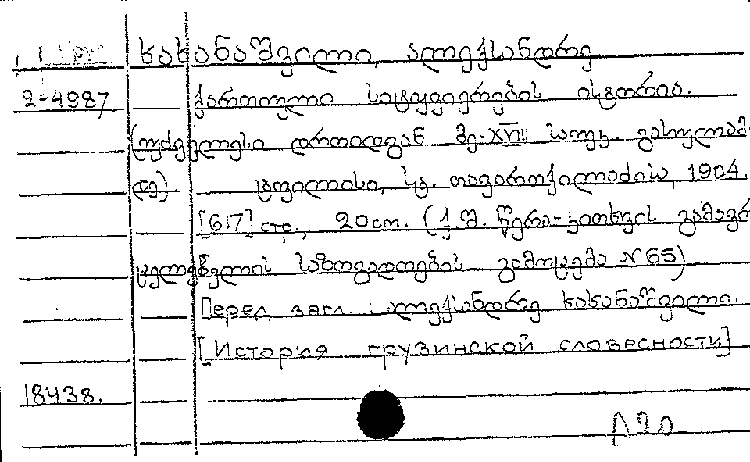 ხახანაშვილი, ალექსანდრე
2-4987 ქართული სიტყვიერების ისტორია.
(უძველესი დროიდგან მე-XVIII საუკ. გასულამ-
დე) ტფილისი, სტ. თავართქილაძისა, 1904.
[617] стр., 20 cm. (ქ. შ. წერა-კითხვის გამავრ-
ცელებელის საზოგადოების გამოცემა №65)
Перед загл.: ალექსანდრე ხახანაშვილი.
[История грузинской словесности]
18438.